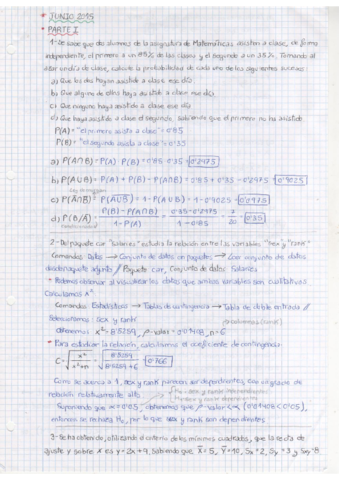 * JUNIO 2015
* PARTE I
1-Se sabe que dos alumnos de la asignatura de Matemáticas asisten a clase, de forma
independiente, el primero a un 85% de las clases y el segundo a un 35%. Tomando al
azar un día de clase, calcule la probabilidad de cada uno de los siguientes sucesos:
a) Que los dos hayan asistido a clase ese día.
b) Que alguno de ellos haya asistido a clase ese día.
c) Que ninguno haya asistido a clase ese día
d) Que haya asistido a clase el segundo, sabiendo que el primero no ha asistido.
P(A) = "el primero asista a clase" = 0'85
P(B) = "el segundo asista a clase" = 0'35
a) P(A∩B) = P(A) · P(B) = 0'85 · 0'35 = 0'2975
b) P(A∪B) = P(A) + P(B) - P(A∩B) = 0'85 + 0'35 - 0'2975 = 0'9025
Ley de Morgan
c) P(A̅∩B̅) = P(A̅∪̅B̅) = 1 - P(A∪B) = 1 - 0'9025 = 0'0975
d) P(B/A̅) = P(B) - P(A∩B) / 1 - P(A) = 0'35 - 0'2975 / 1 - 0'85 = 7/20 = 0'35
2-Del paquete car "Salaries" estudia la relación entre las variables "sex" y "rank"
Comandos: Datos → Conjunto de datos en paquetes → Leer conjunto de datos
desde paquete adjunto // Paquete: car, Conjunto de datos: Salaries
* Podemos observar al visualizar los datos que ambas variables son cualitativas
Calculamos X²
Comandos: Estadísticos → Tablas de contingencia → Tabla de doble entrada //
Seleccionamos: sex y rank
Obtenemos x² = 8'5259, p-valor = 0'01408, n = 6
* Para estudiar la relación, calculamos el coeficiente de contingencia
C = √ x² / x²+n = √ 8'5259 / 8'5259 + 6 = 0'766
Como se acerca a 1, sex y rank parecen ser dependientes, con un grado de
relación relativamente alto
Suponiendo que α = 0'05, obtenemos que p-valor < α (0'01408 < 0'05),
entonces se rechaza H₀, por lo que sex y rank son dependientes.
3-Se ha obtenido, utilizando el criterio de los mínimos cuadrados, que la recta de
ajuste y sobre X es y = 2x + 9. Sabiendo que X̅ = 5, Y̅ = 10, Sx = 2, Sy = 3 y Sxy = 8